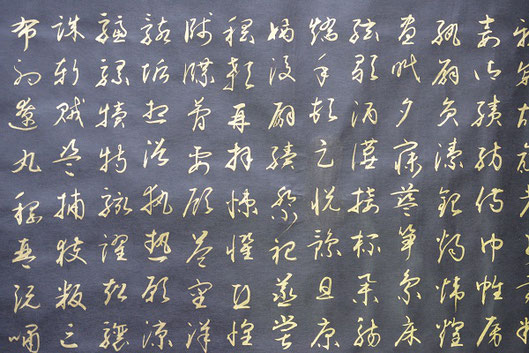 妾御績紡侍巾帷房
紈扇員潔銀燭煒煌
晝眠夕寐藍笋象床
絃歌酒讌接杯舉觴
矯手頓足悅豫且康
嫡後嗣續祭祀烝嘗
稽顙再拜悚懼恐惶
牋牒簡要顧答審詳
骸垢想浴執熱願涼
驢騾犢特駭躍超驤
誅斬賊盜捕獲叛亡
布射遼丸嵇琴阮嘯